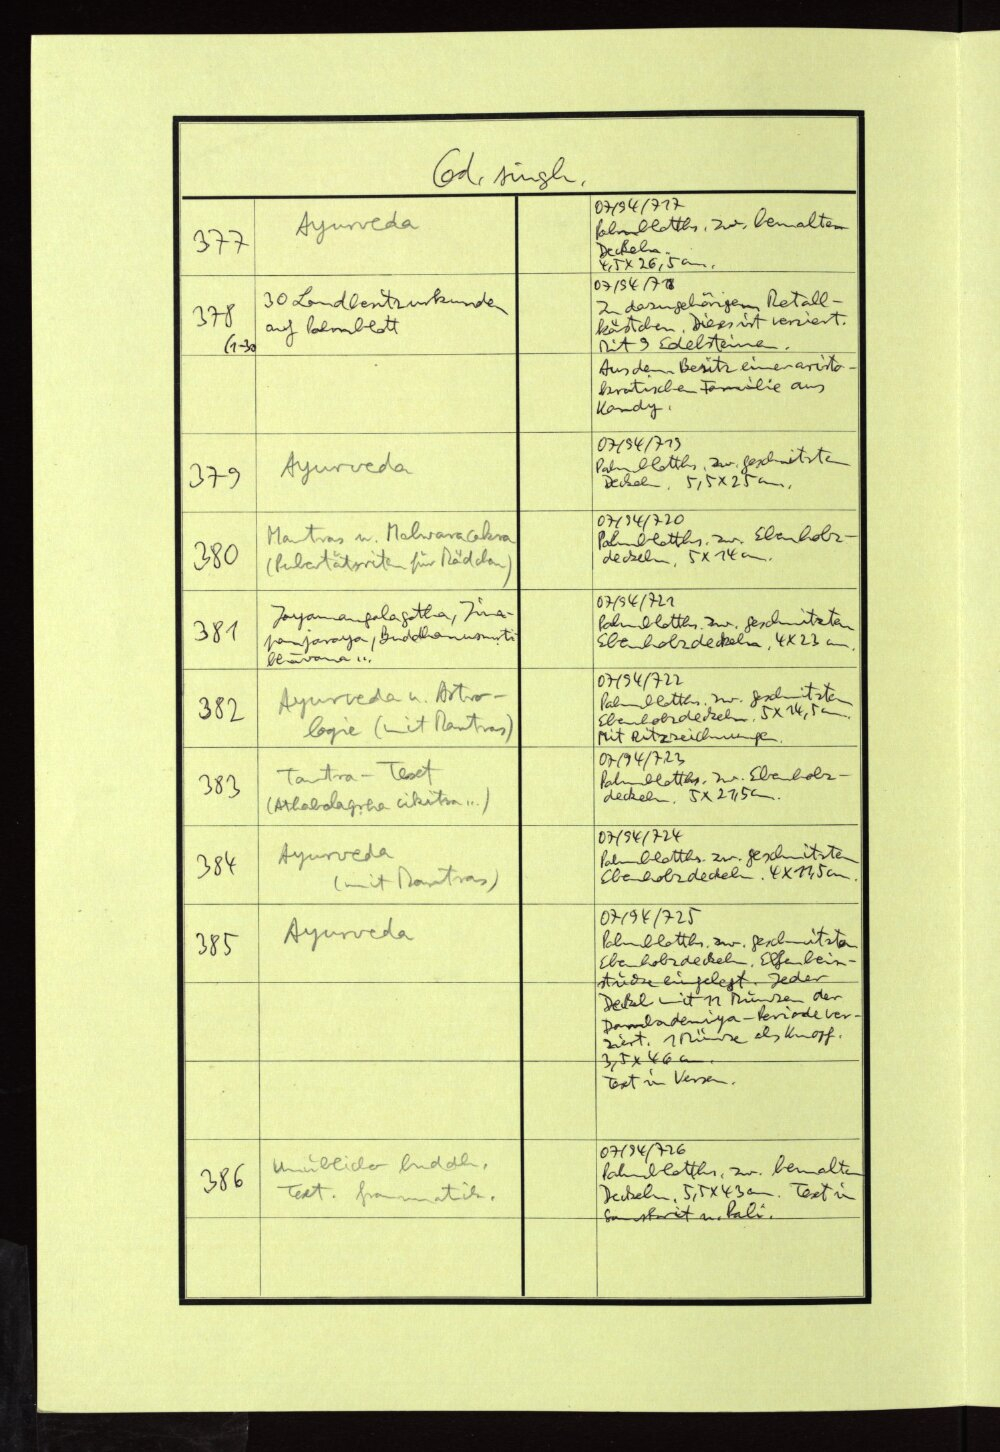 Cod. singh.
377
Ayurveda
07/94/717
Palmblatths. zw. bemalten
Deckeln.
4,5 x 26,5 cm.
378
(1-30
30 Landbesitzurkunden
auf Palmblatt
07/94/718
In dazugehörigem Metall-
kästchen. Dieses ist verziert.
Mit 9 Edelsteinen.
Aus dem Besitz einer aristo-
kratischen Familie aus
Kandy.
379
Ayurveda
07/94/719
Palmblatths. zw. geschnitzten
Deckeln. 5,5 x 25 cm.
380
Mantras u. Malwaracakra
(Pubertätsriten für Mädchen)
07/94/720
Palmblatths. zw. Ebenholz-
deckeln. 5 x 14 cm.
381
Jayamangalagatha, Jina-
panjaraya, Buddhanusmrti
bhāvana ...
07/94/721
Palmblatths. zw. geschnitzten
Ebenholzdeckeln. 4 x 23 cm.
382
Ayurveda u. Astro-
logie (mit Mantras)
07/94/722
Palmblatths. zw. geschnitzten
Ebenholzdeckeln. 5 x 14,5 cm.
Mit Ritzzeichnungen.
383
Tantra - Text
cikitsa ...)
07/94/723
Palmblatths. zw. Ebenholz-
deckeln. 5 x 21,5 cm.
384
Ayurveda
(mit Mantras)
07/94/724
Palmblatths. zw. geschnitzten
Ebenholzdeckeln. 4 x 11,5 cm.
385
Ayurveda
07/94/725
Palmblatths. zw. geschnitzten
Ebenholzdeckeln. Elfenbein-
stücke eingelegt. Jeder
Deckel mit 11 Münzen der
Dambadeniya-Periode ver-
ziert. 1 Münze als Knopf.
3,5 x 46 cm.
Text in Versen.
386
buddh.
Text. Grammatik.
07/94/726
Palmblatths. zw. bemalten
Deckeln. 5,5 x 43 cm. Text in
Sanskrit u. Pali.